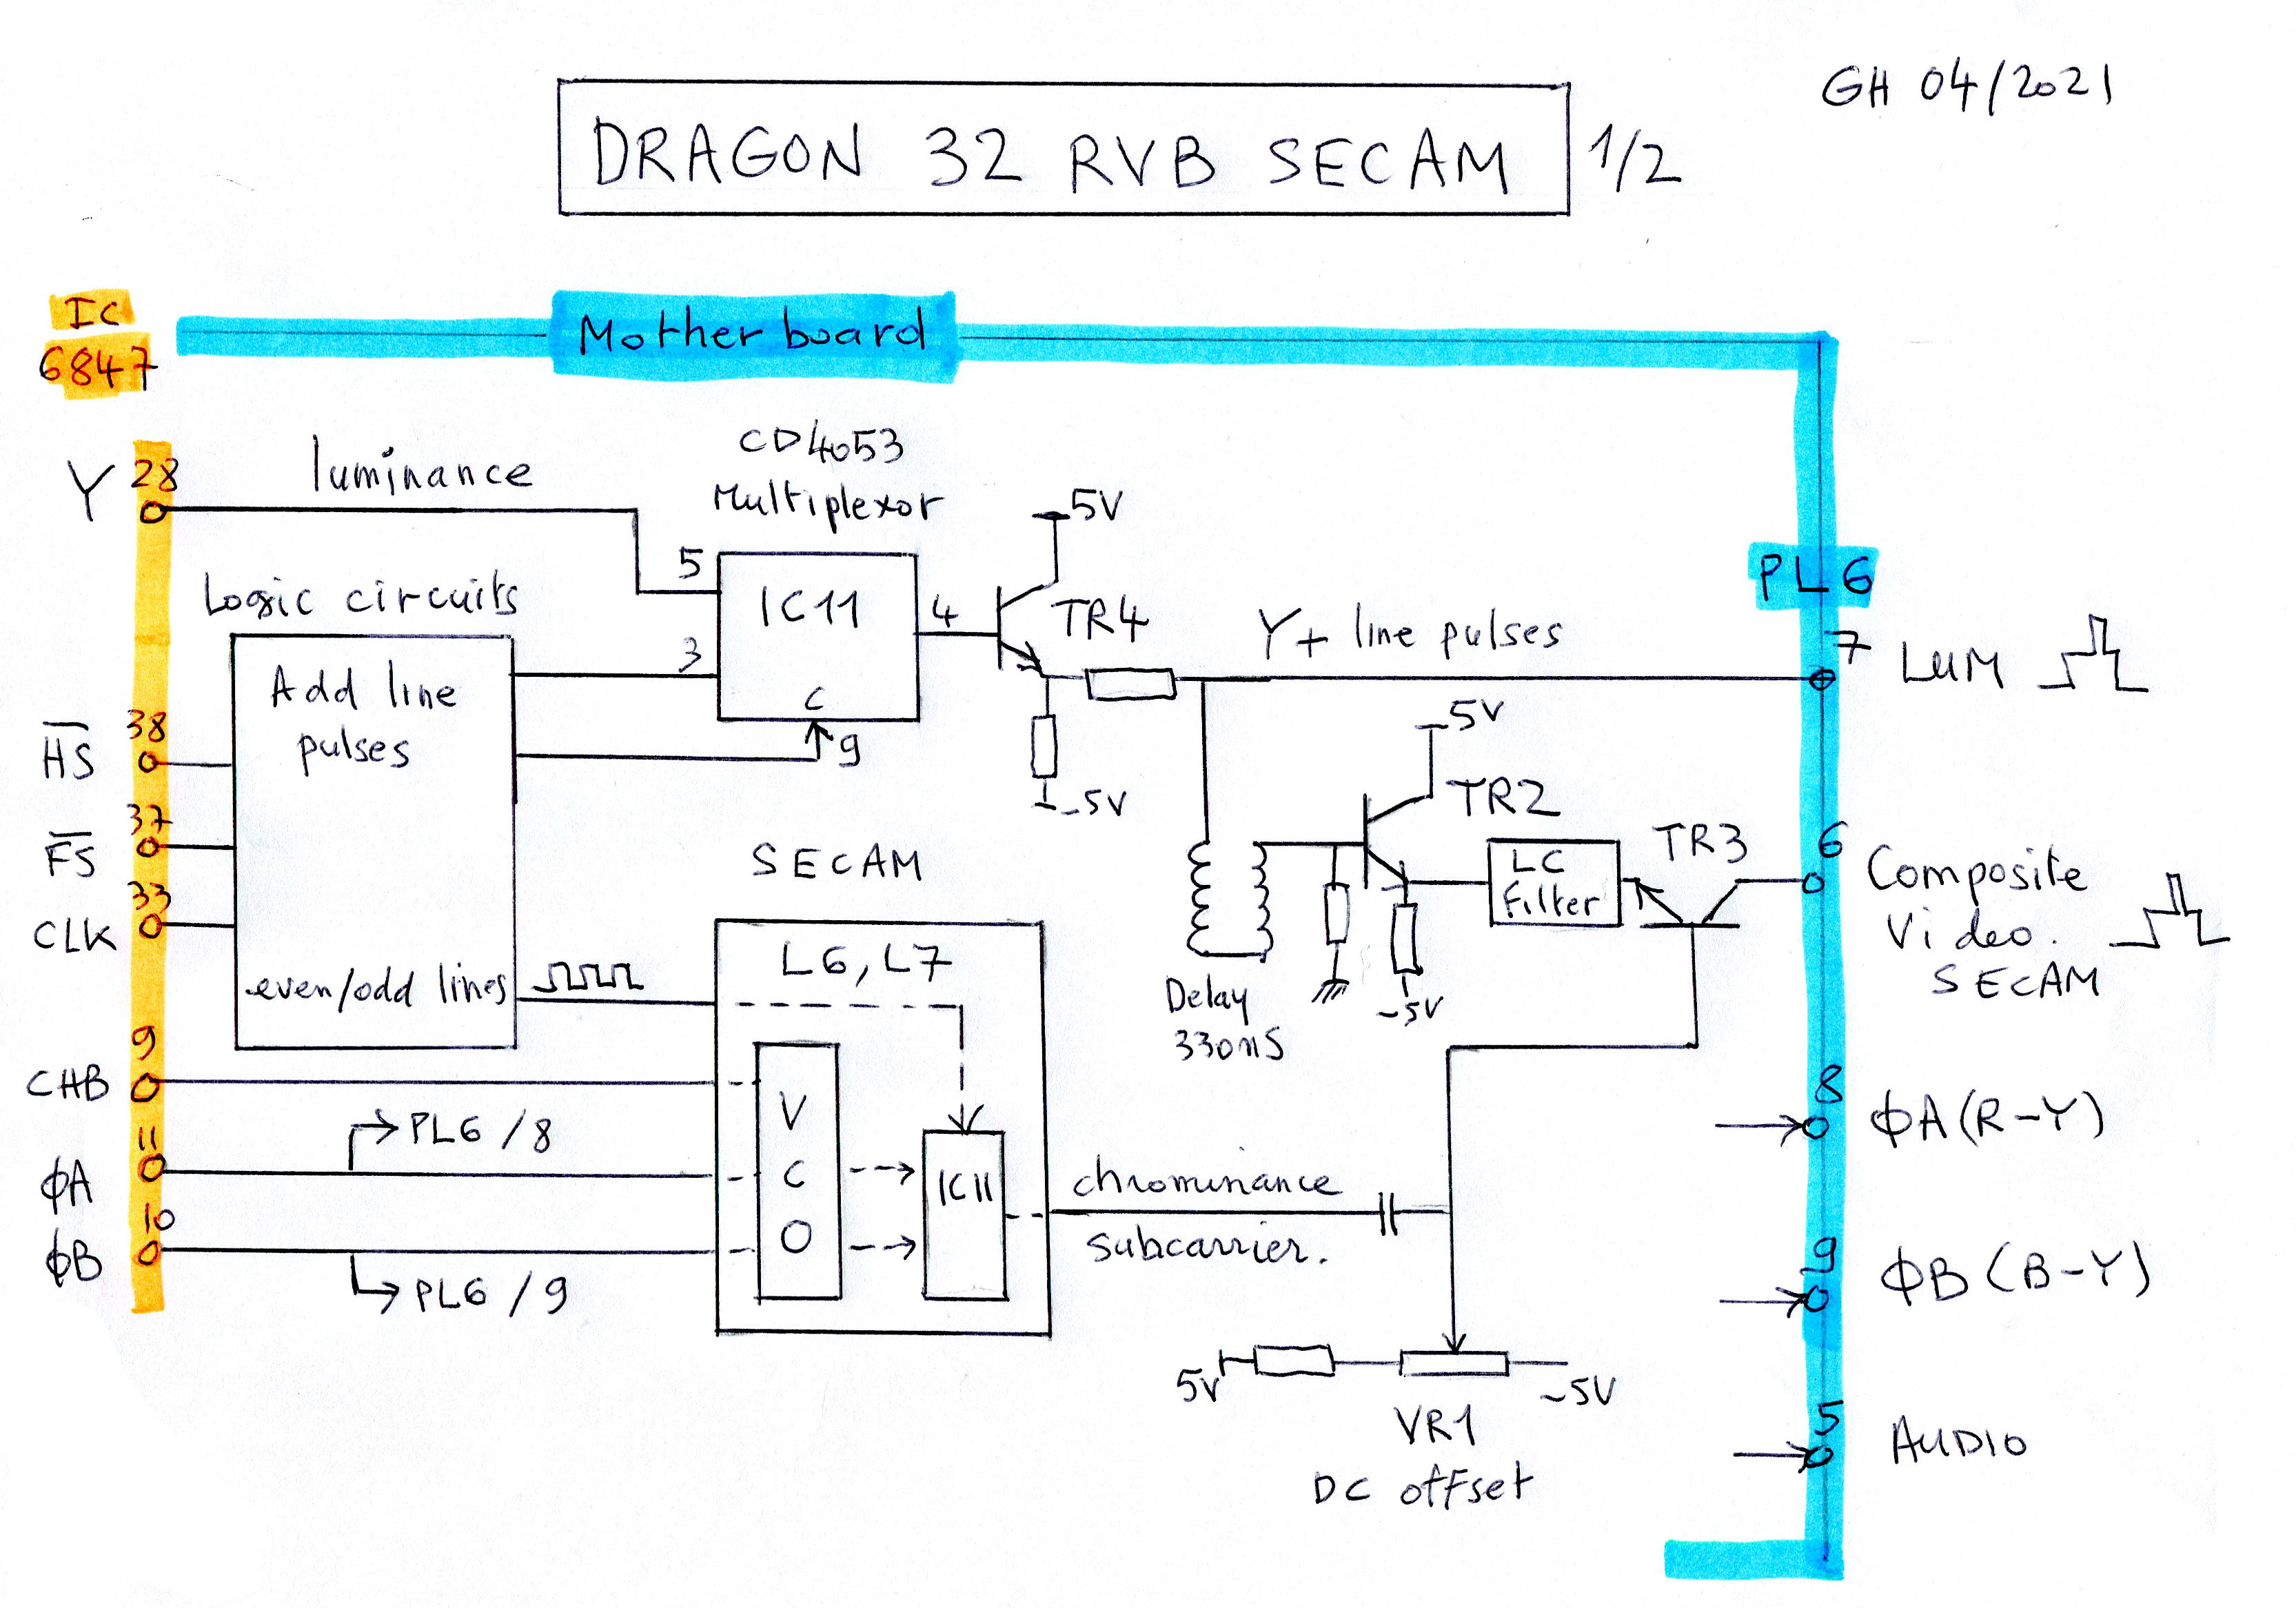 GH 04/2021
DRAGON 32 RVB SECAM 1/2
IC
6847
Mother board
CD4053
Multiplexor
Y 28
luminance
5V
5
IC11
4
TR4
PL6
Logic circuits
Add line
pulses
3
C
9
-5V
Y+ line pulses
7
LUM
HS 38
FS 37
CLK 33
even/odd lines
5V
TR2
LC
Filter
TR3
6
Composite
Video.
SECAM
Delay
330nS
-5V
SECAM
L6, L7
V
C
O
IC11
CHB 9
ΦA 11
PL6 / 8
ΦB 10
PL6 / 9
chrominance
subcarrier.
8
ΦA (R-Y)
9
ΦB (B-Y)
5V
-5V
VR1
DC offset
5
AUDIO